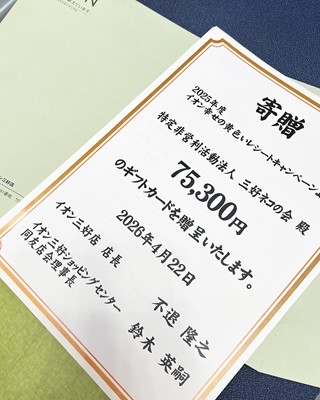 寄贈
2025年度
イオン幸せの黄色いレシートキャンペーン
特定非営利活動法人 三好ネコの会 殿
75,300円
のギフトカードを贈呈いたします。
2026年4月22日
イオン三好店 店長 不退 隆之
イオン三好ショッピングセンター
同友店会理事長 鈴木 英嗣